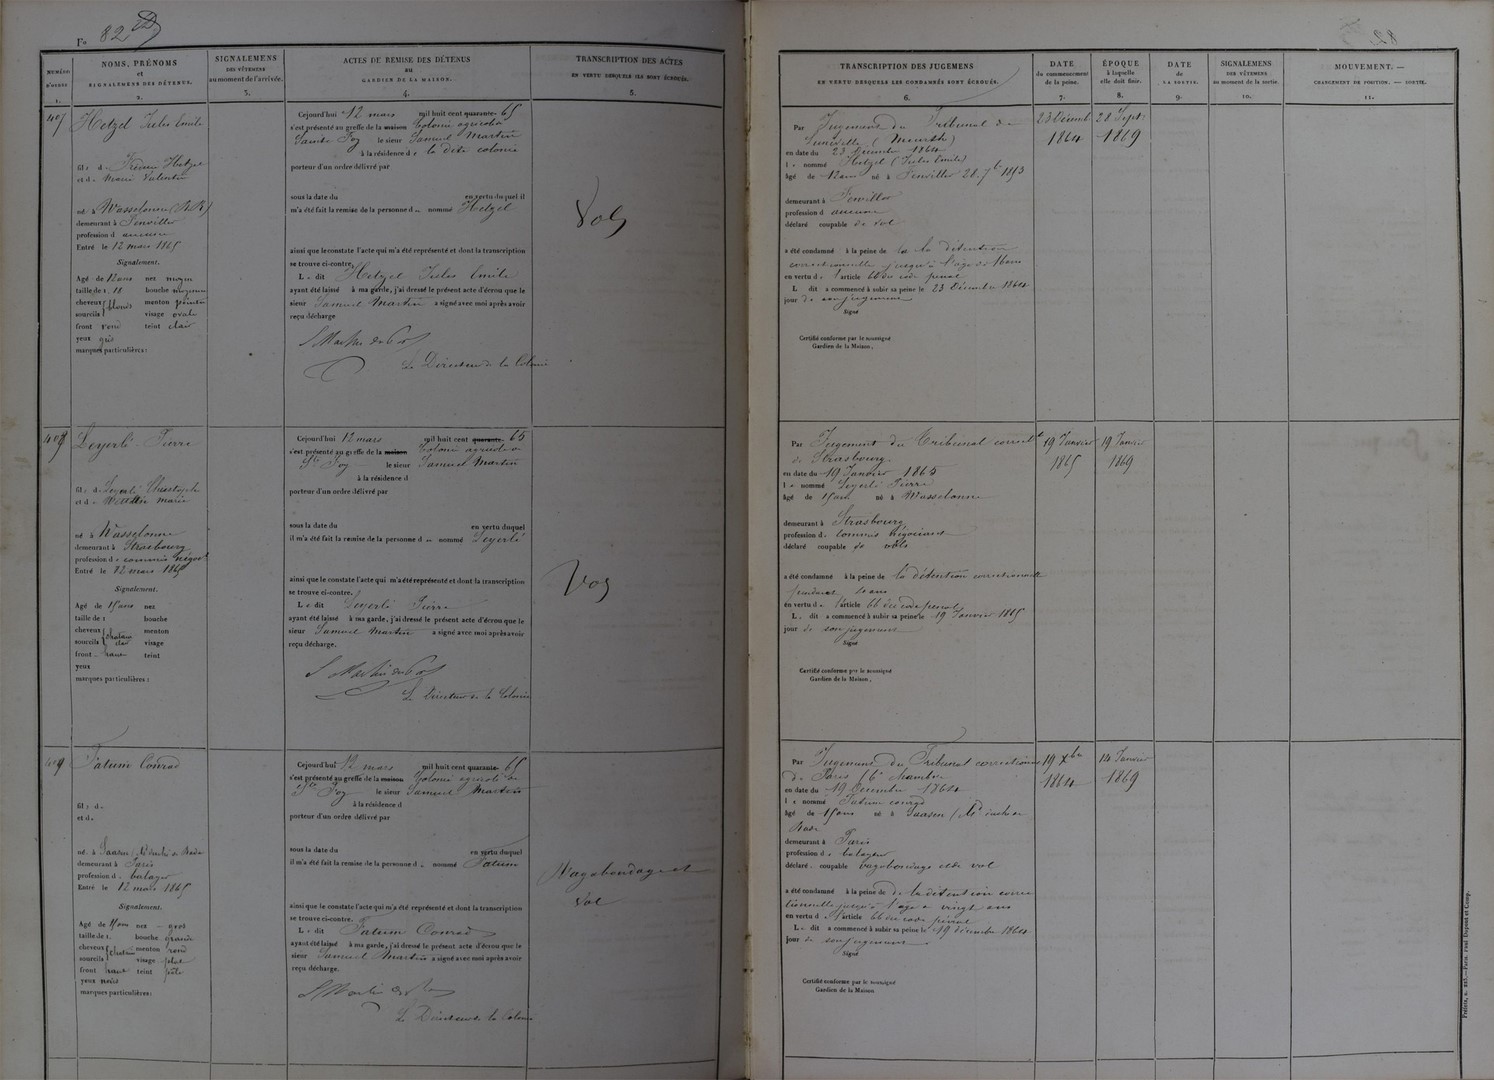 Fo 82
NUMÉRO D'ORDRE 1.
NOMS, PRÉNOMS et SIGNALEMENS DES DÉTENUS. 2.
SIGNALEMENS DES VÊTEMENS au moment de l'arrivée. 3.
ACTES DE REMISE DES DÉTENUS au GARDIEN DE LA MAISON. 4.
TRANSCRIPTION DES ACTES EN VERTU DESQUELS ILS SONT ÉCROUÉS. 5.
TRANSCRIPTION DES JUGEMENS EN VERTU DESQUELS LES CONDAMNÉS SONT ÉCROUÉS. 6.
DATE du commencement de la peine. 7.
ÉPOQUE à laquelle elle doit finir. 8.
DATE de LA SORTIE. 9.
SIGNALEMENS DES VÊTEMENS au moment de la sortie. 10.
MOUVEMENT. — CHANGEMENT DE POSITION. — SORTIE. 11.
407
Hetzel Jules Emile
fils de Pierre Hetzel
et de Marie Valentin
né à Wasselonne (B.R)
demeurant à
profession d aucune
Entré le 12 mars 1865
Signalement.
Agé de 12 ans nez moyen
taille de 1. 18 bouche moyenne
cheveux blonds menton pointu
sourcils visage ovale
front rond teint clair
yeux gris
marques particulières :
Cejourd'hui 12 mars mil huit cent quarante- 65
s'est présenté au greffe de la maison Colonie agricole
Sainte Foy le sieur Samuel Martin
à la résidence de la dite colonie
porteur d'un ordre délivré par
sous la date du en vertu duquel il
m'a été fait la remise de la personne d nommé Hetzel
ainsi que le constate l'acte qui m'a été représenté et dont la transcription
se trouve ci-contre.
Le dit Hetzel Jules Emile
ayant été laissé à ma garde, j'ai dressé le présent acte d'écrou que le
sieur Samuel Martin a signé avec moi après avoir
reçu décharge
Le Directeur de la Colonie
Vol
Par Jugement du Tribunal de
Lunéville (Meurthe)
en date du 23 Décembre 1864
le nommé Hetzel (Jules Emile)
âgé de 12 ans né à 28 7bre 1853
demeurant à
profession d aucune
déclaré coupable de vol
a été condamné à la peine de la détention
correctionnelle jusqu'à l'âge de 16 ans
en vertu de l'article 66 du code pénal
L dit a commencé à subir sa peine le 23 Décembre 1864
jour de son jugement
Signé
Certifié conforme par le soussigné
Gardien de la Maison,
23 Décemb
1864
28 Sept
1869
408
Leyerlé Pierre
fils de Leyerlé Christophe
et de marie
né à Wasselonne
demeurant à Strasbourg
profession de commis négot
Entré le 12 mars 1865
Signalement.
Agé de 15 ans nez
taille de 1 bouche
cheveux chatain menton
sourcils visage
front haut teint
yeux
marques particulières :
Cejourd'hui 12 mars mil huit cent quarante- 65
s'est présenté au greffe de la maison Colonie agricole
Ste Foy le sieur Samuel Martin
à la résidence d
porteur d'un ordre délivré par
sous la date du en vertu duquel
il m'a été fait la remise de la personne d nommé Leyerlé
ainsi que le constate l'acte qui m'a été représenté et dont la transcription
se trouve ci-contre.
Le dit Leyerlé Pierre
ayant été laissé à ma garde, j'ai dressé le présent acte d'écrou que le
sieur Samuel Martin a signé avec moi après avoir
reçu décharge.
Le Directeur de la Colonie
Vol
Par Jugement du Tribunal correct
de Strasbourg
en date du 19 Janvier 1865
le nommé Leyerlé Pierre
âgé de 15 ans né à Wasselonne
demeurant à Strasbourg
profession de Commis négociant
déclaré coupable de vols
a été condamné à la peine de la détention correctionnelle
pendant 4 ans
en vertu de l'article 66 du code pénal
L. dit a commencé à subir sa peine le 19 Janvier 1865
jour de son jugement
Signé
Certifié conforme par le soussigné
Gardien de la Maison,
19 Janvier
1865
19 Janvier
1869
409
Tatum Conrad
fils de
et de
né à
demeurant à Paris
profession de balayeur
Entré le 12 mars 1865
Signalement.
Agé de 15 ans nez gros
taille de 1. bouche grande
cheveux chatain menton rond
sourcils visage
front haut teint
yeux noirs
marques particulières :
Cejourd'hui 12 mars mil huit cent quarante- 65
s'est présenté au greffe de la maison Colonie agricole
Ste Foy le sieur Samuel Martin
à la résidence d
porteur d'un ordre délivré par
sous la date du en vertu duquel
il m'a été fait la remise de la personne d nommé Tatum
ainsi que le constate l'acte qui m'a été représenté et dont la transcription
se trouve ci-contre.
Le dit Tatum Conrad
ayant été laissé à ma garde, j'ai dressé le présent acte d'écrou que le
sieur Samuel Martin a signé avec moi après avoir
reçu décharge.
Le Directeur de la Colonie
Vagabondage et
Vol
Par Jugement du Tribunal correctionnel
de Paris (6e chambre
en date du 19 Décembre 1864
le nommé Tatum conrad
âgé de 15 ans né à
demeurant à Paris
profession de balayeur
déclaré coupable vagabondage et de vol
a été condamné à la peine de de la détention correc
tionnelle jusqu'à l'âge de vingt ans
en vertu de l'article 66 du code pénal
Le dit a commencé à subir sa peine le 19 décembre 1864
jour de son jugement
Signé
Certifié conforme par le soussigné
Gardien de la Maison.
19 Xbre
1864
14 Janvier
1869